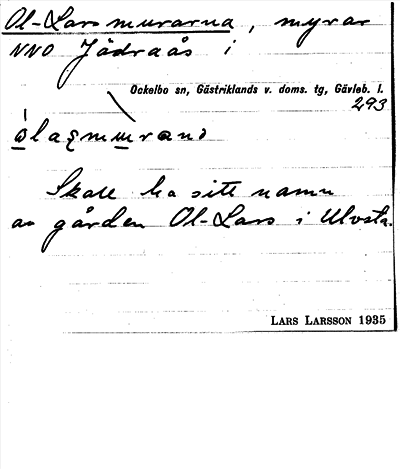 Ol-Lars murarna, myrar
NNO Jädraås i
Ockelbo sn, Gästriklands v. doms. tg, Gävleb. l.
293
Skall ha sitt namn
av gården Ol-Lars i Ulvsta.
LARS LARSSON 1935